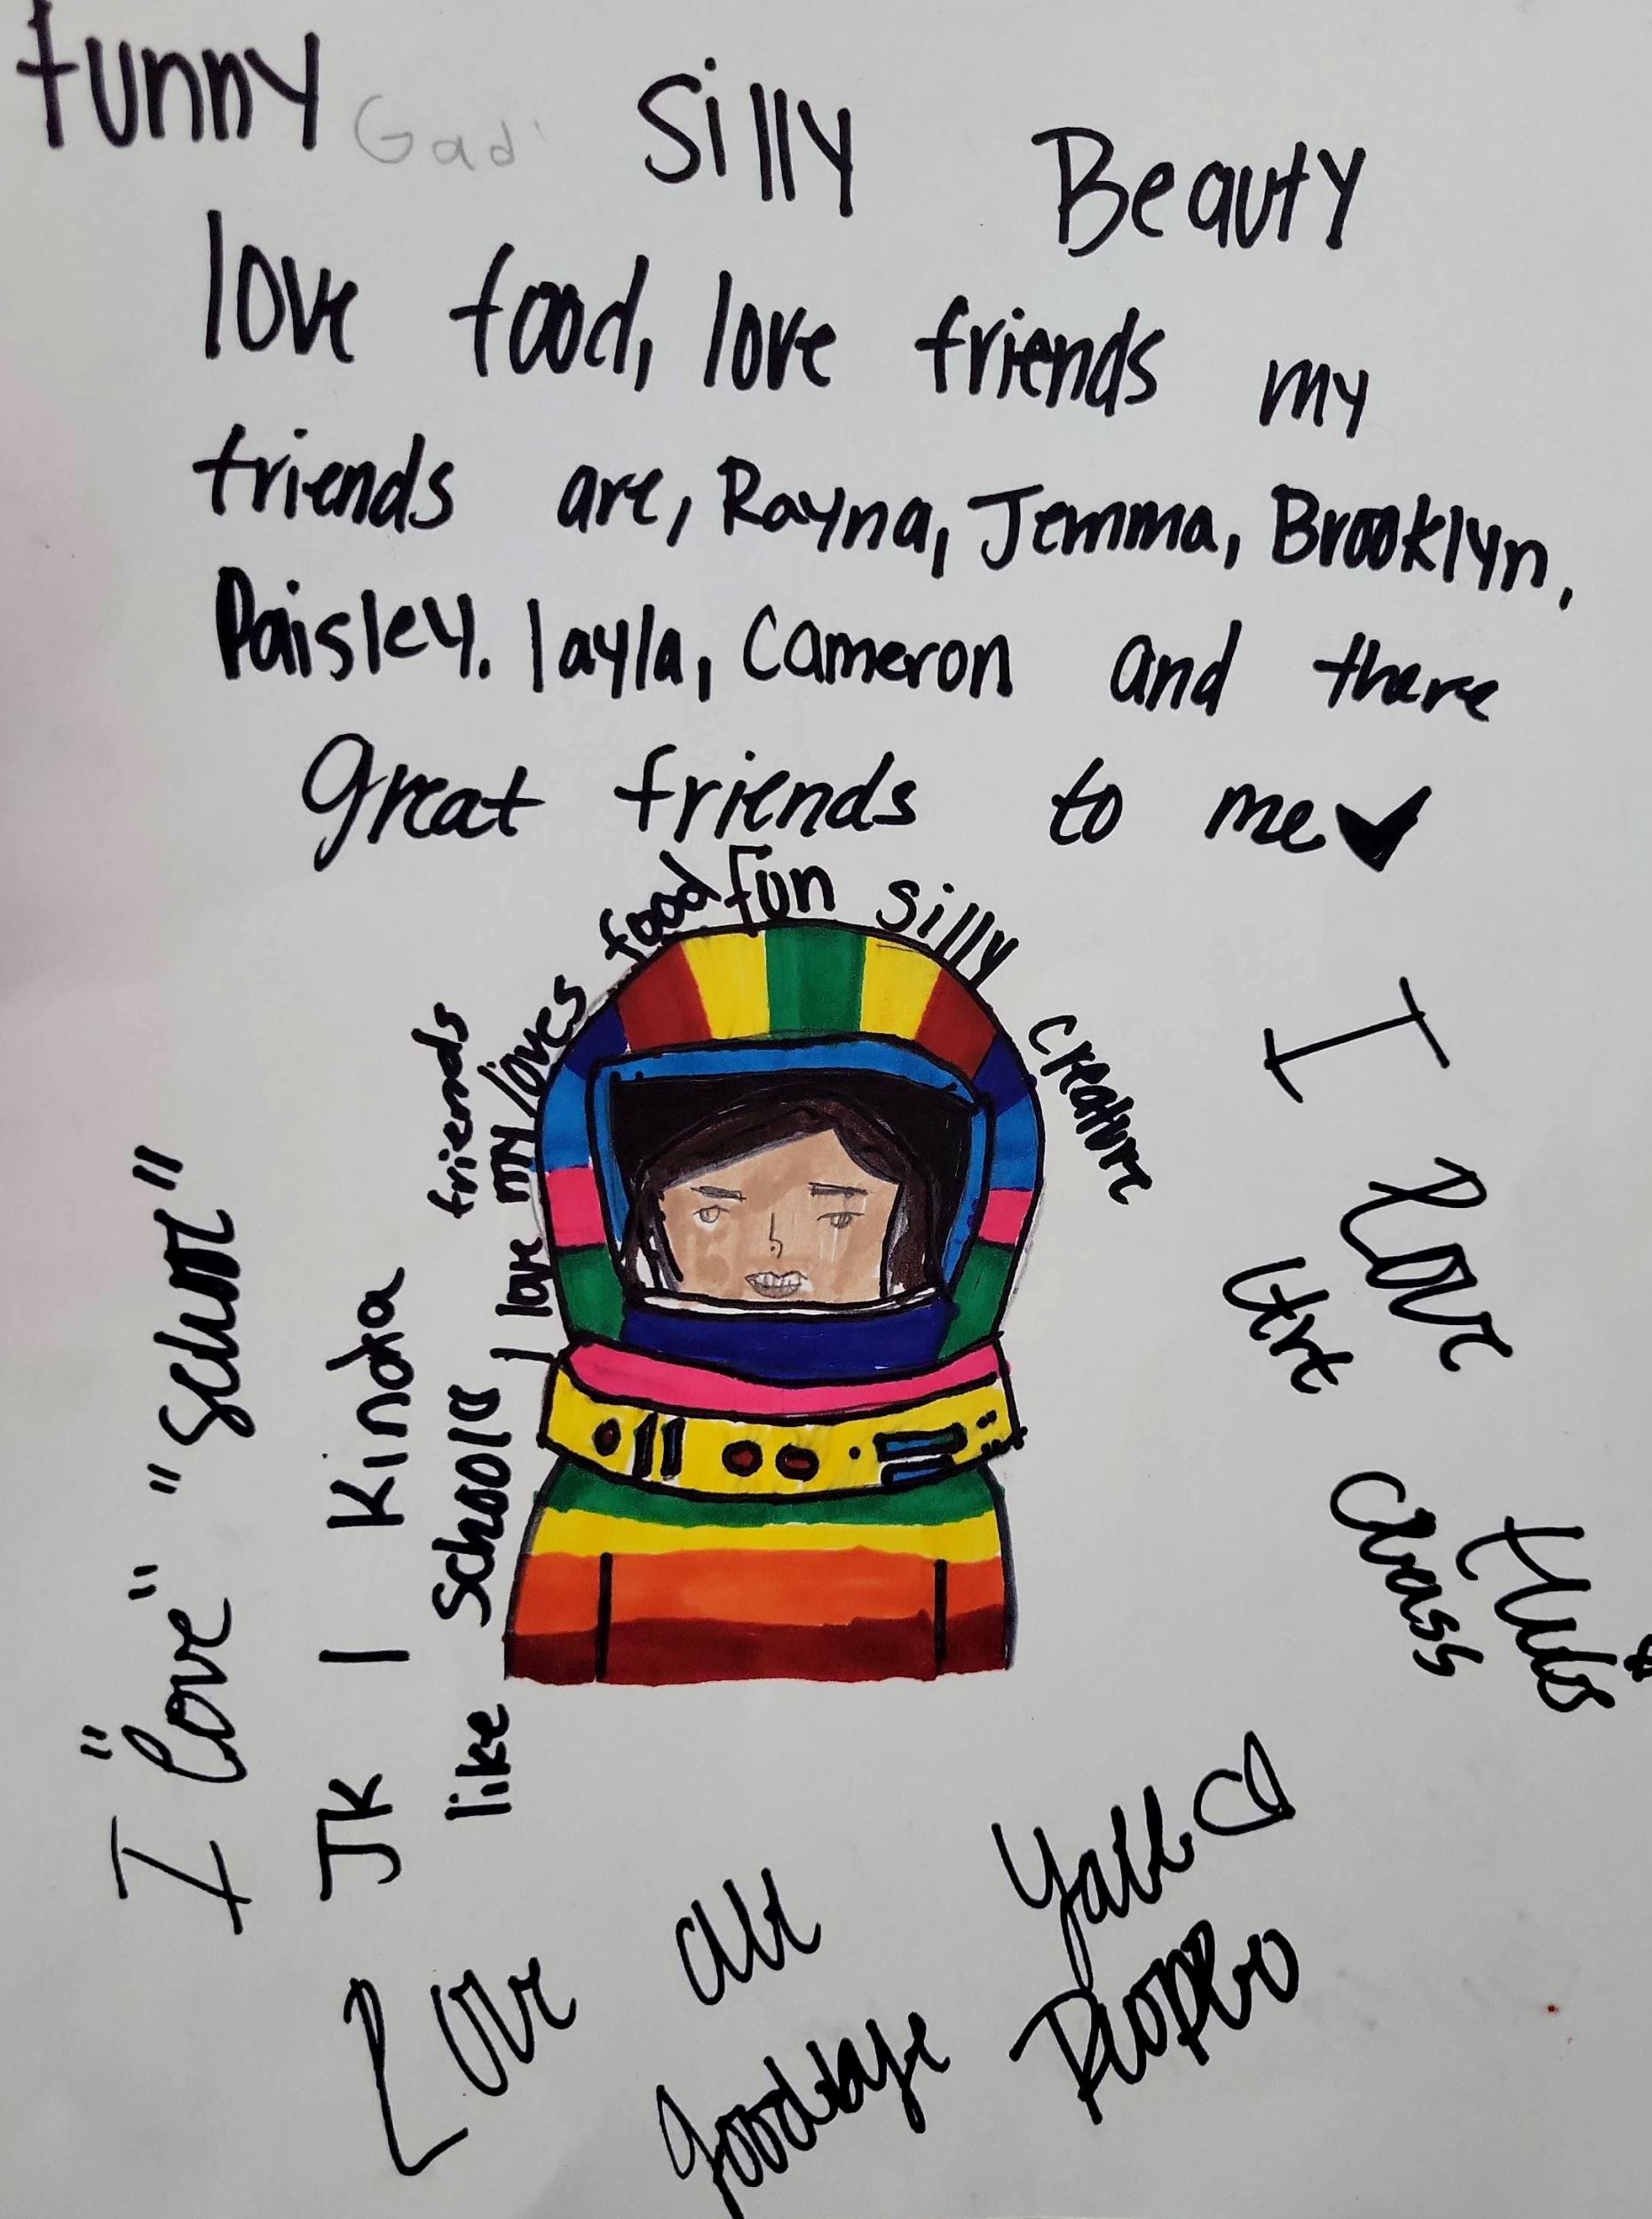 funny Gad Silly Beauty
love food, love friends my
friends are, Rayna, Jemma, Brooklyn,
Paisley. layla, Cameron and there
Great friends to me
food fun silly
creature
friends
I love my loves
I "love" "School"
JK I Kinda
like School
I love
this
Art
Class
Love all Yall
goodbye People